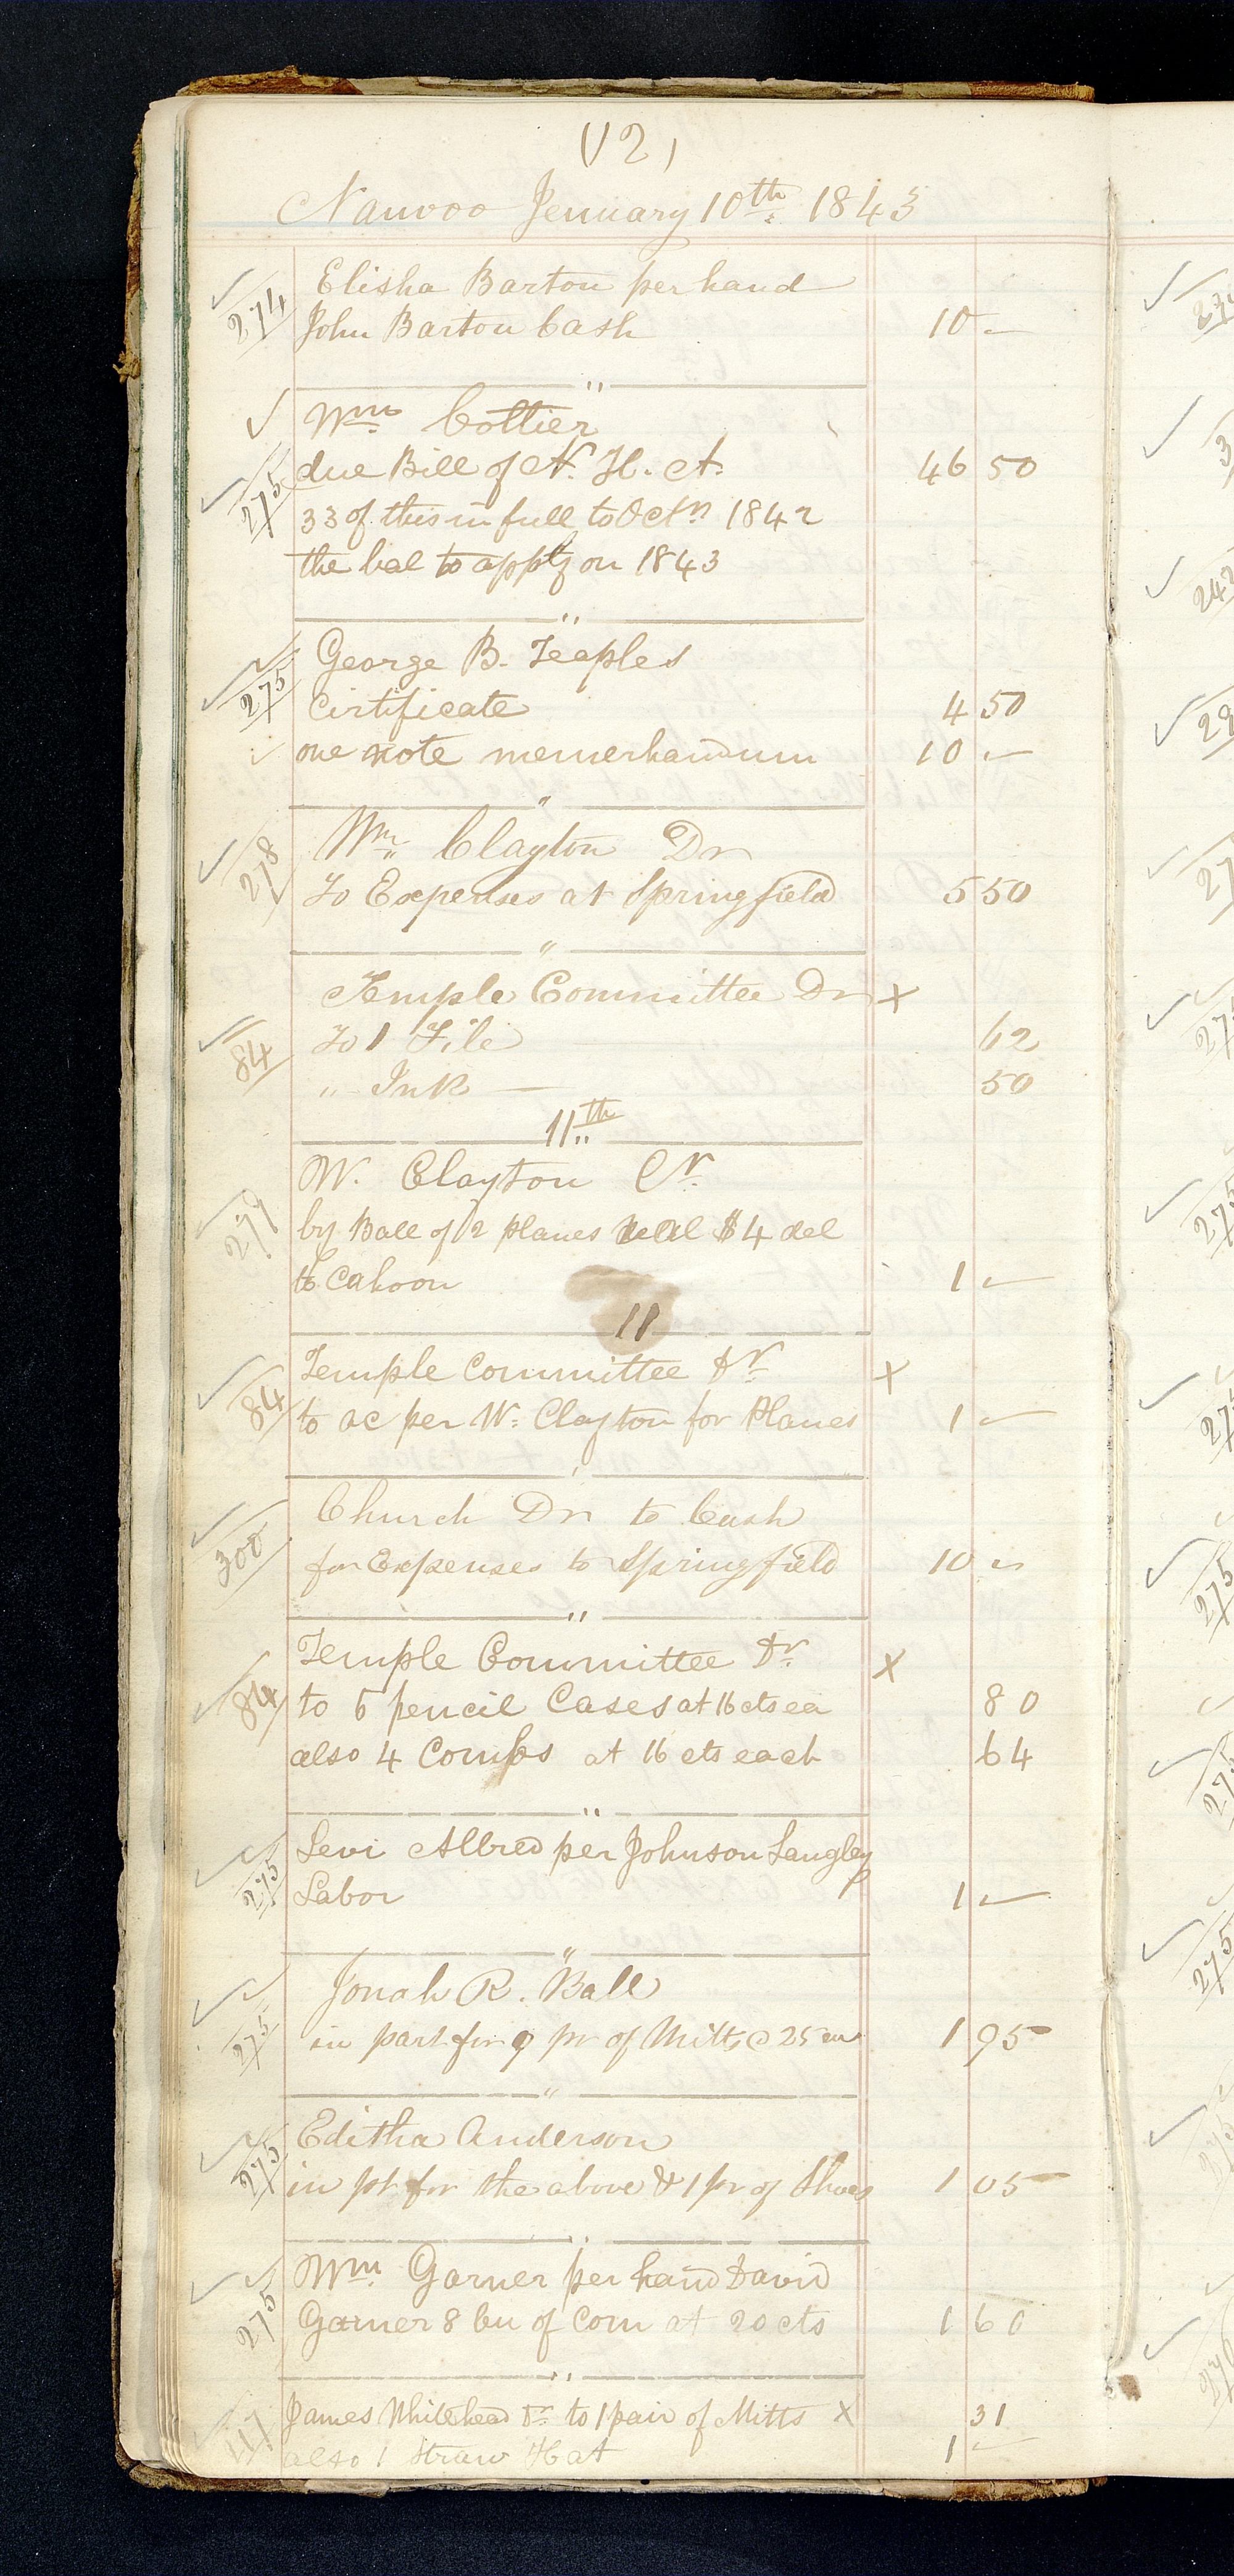 (12)
Nauvoo Jenuary 10th 1843
274 Elisha Barton per hand
John Barton Cash 10 —
"
Wm Cottier
275 due Bill of N. H. A. 46 50
33 of this in full to Octn 1842
the bal to apply on 1843
"
George B. Teaples
275 Cirtificate 4 50
one note memerhandum 10 —
"
Wm Clayton Dr
278 To Expenses at Springfield 5 50
"
Temple Committee Dr X
84 To 1 File 62
" Ink — 50
11th
W. Clayton Cr
279 by Ball of 2 planes $4 del
to Cahoon 1 —
11
Temple Committee Dr X
84 to ac per W. Clayton for Planes 1 —
Church Dr to Cash
300 for Expenses to Springfield 10 —
"
Temple Committee Dr X
84 to 5 pencil Cases at 16 cts ea 80
also 4 Combs at 16 cts each 64
"
Levi Allred per Johnson Langley
275 Labor 1 —
"
Jonah R. Ball
275 in part for 9 pr of Mitts @ 25 1 95
"
Editha Anderson
275 in pt for the above & 1 pr of Shoes 1 05
"
Wm Garner per hand David
275 Garner 8 bu of Corn at 20 cts 1 60
"
James Whitehead Dr to 1 pair of Mitts X 31
117 also 1 Straw Hat 1 —